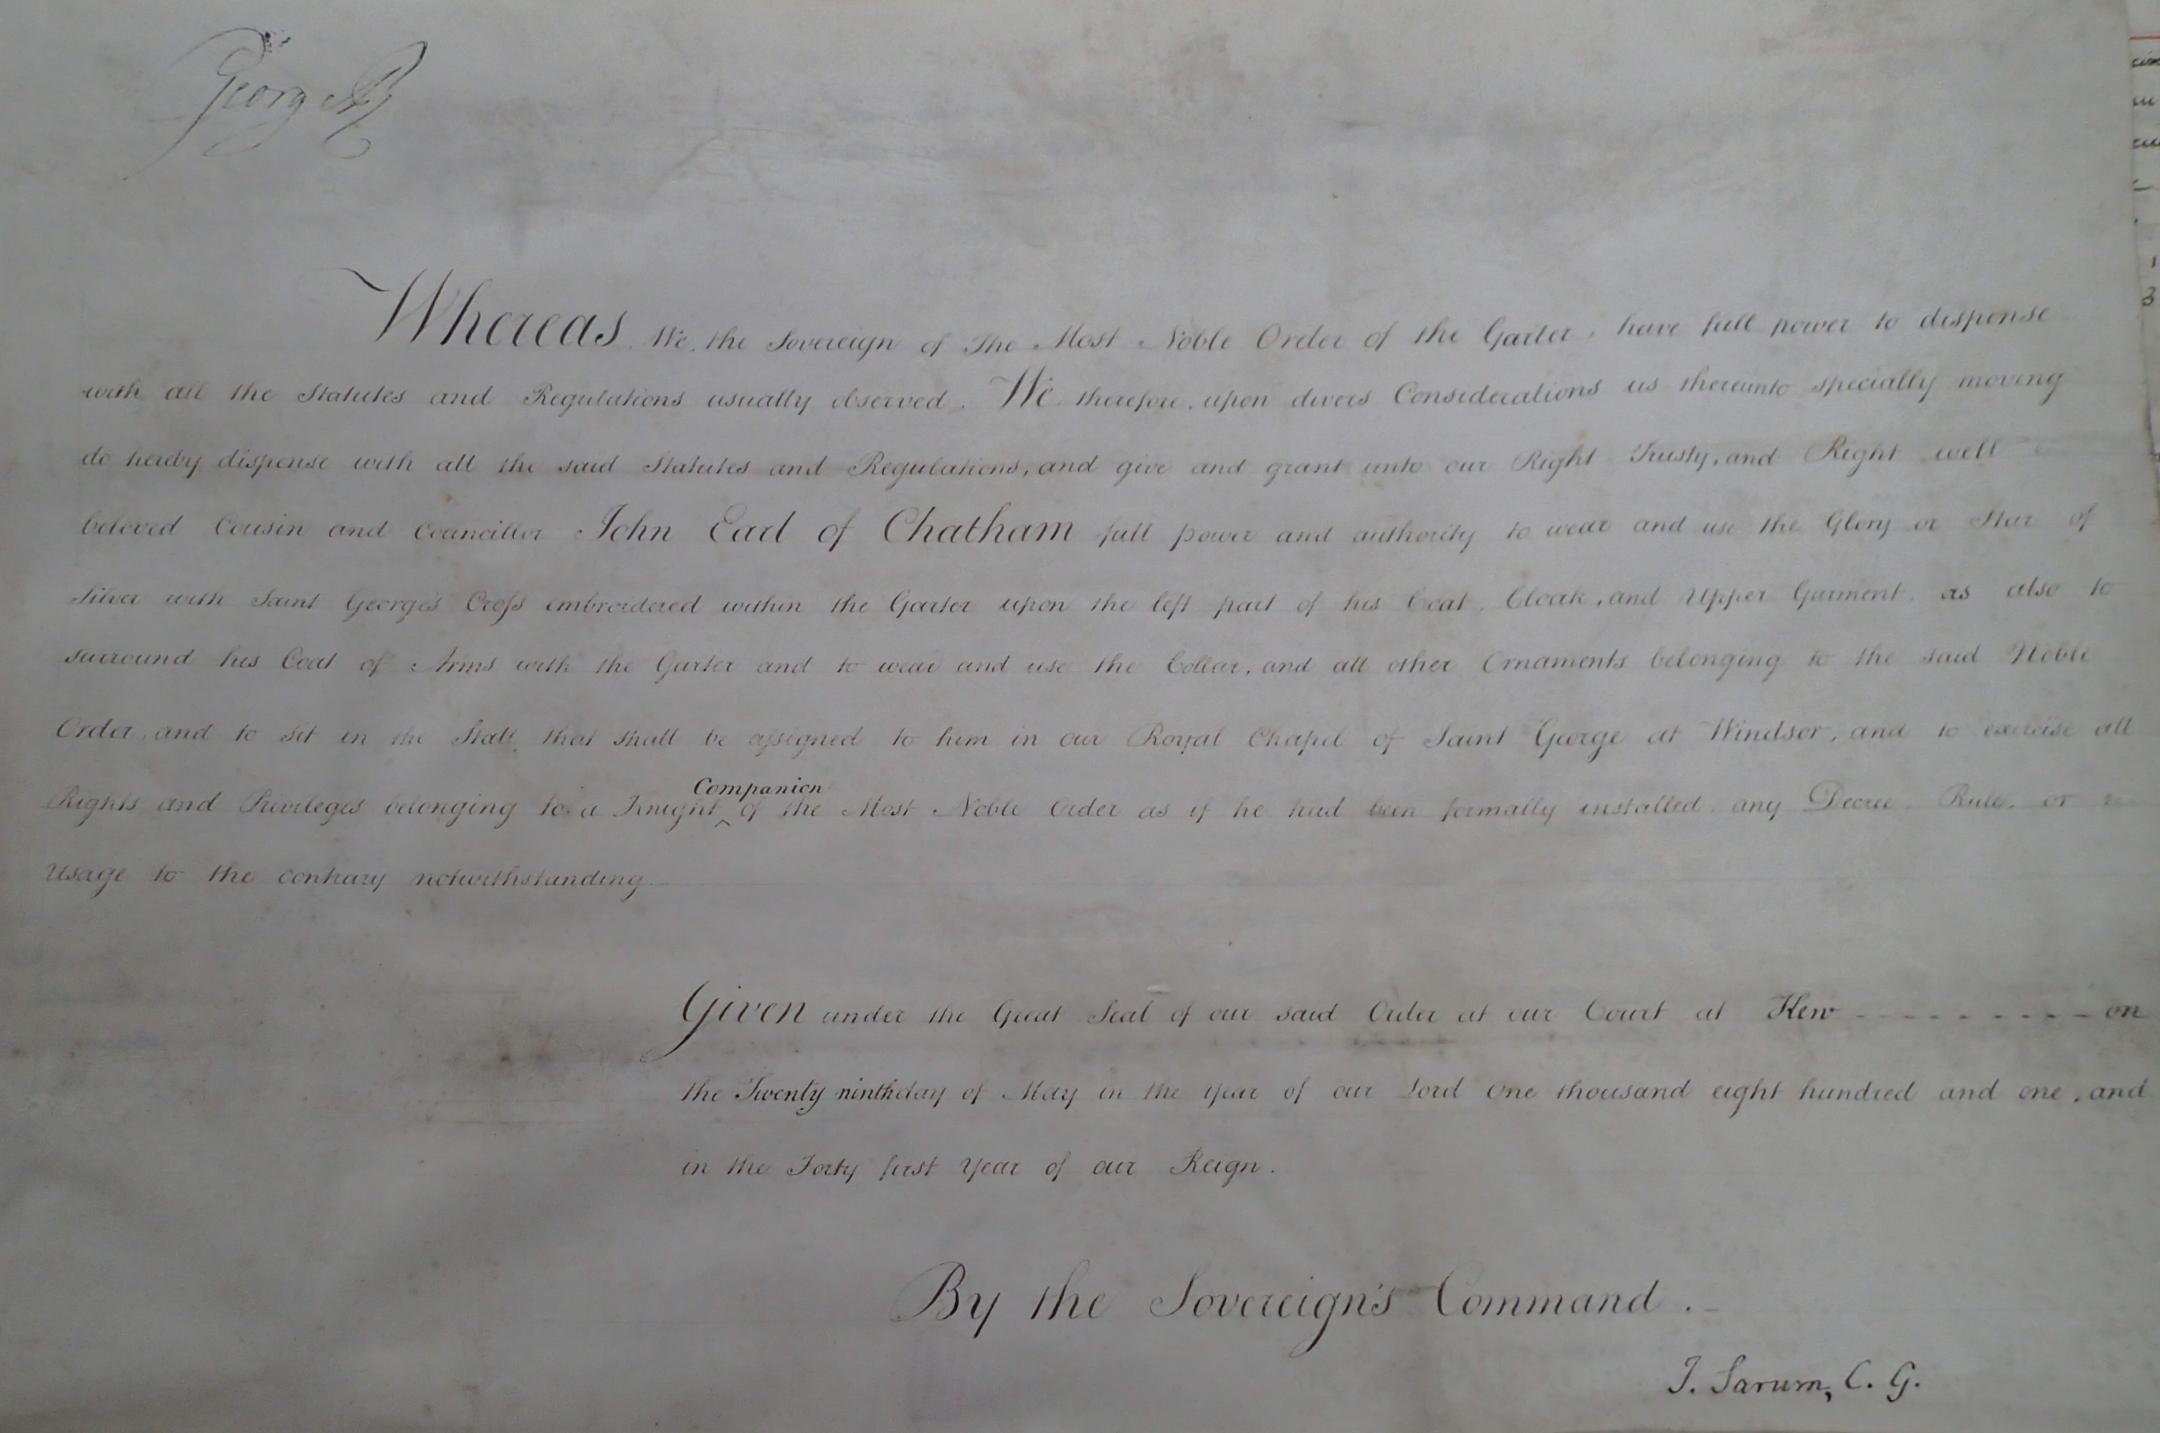 George R
Whereas We, the Sovereign of The Most Noble Order of the Garter, have full power to dispense
with all the Statutes and Regulations usually observed. We therefore, upon divers Considerations us thereunto specially moving
do hereby dispense with all the said Statutes and Regulations, and give and grant unto our Right Trusty, and Right well
beloved Cousin and Councillor John Earl of Chatham full power and authority to wear and use the Glory or Star of
Silver with Saint George's Croſs embroidered within the Garter upon the left part of his Coat, Cloak, and Upper Garment, as also to
surround his Coat of Arms with the Garter and to wear and use the Collar, and all other Ornaments belonging to the said Noble
Order, and to sit in the Stall that shall be aſsigned to him in our Royal Chapel of Saint George at Windsor, and to exercise all
Companion
Rights and Privileges belonging to a Knight ‸ of the Most Noble Order as if he had been formally installed, any Decree, Rule, or
Usage to the contrary notwithstanding.
Given under the Great Seal of our said Order at our Court at Kew - - - - - - - - - on
the Twenty ninth day of May in the Year of our Lord One thousand eight hundred and one, and
in the Forty first Year of our Reign.
By the Sovereign's Command.
J. Sarum, C. G.